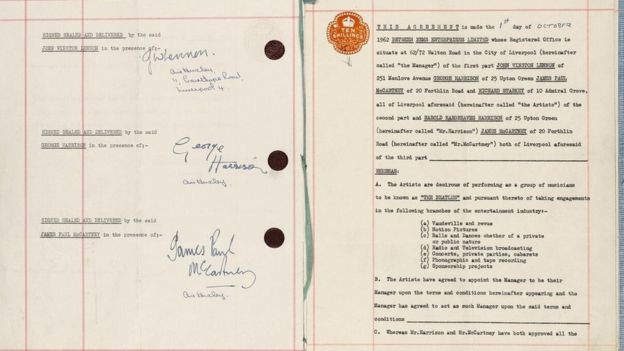 SIGNED SEALED AND DELIVERED by the said
JOHN WINSTON LENNON in the presence of:-
JWLennon.
Liverpool 4.
SIGNED SEALED AND DELIVERED by the said
GEORGE HARRISON in the presence of:-
George
Harrison
SIGNED SEALED AND DELIVERED by the said
JAMES PAUL McCARTNEY in the presence of:-
James Paul
McCartney
TEN
SHILLINGS
THIS AGREEMENT is made the 1st day of OCTOBER
1962 BETWEEN NEMS ENTERPRISES LIMITED whose Registered Office is
situate at 62/72 Walton Road in the City of Liverpool (hereinafter
called "the Manager") of the first part JOHN WINSTON LENNON of
251 Menlove Avenue GEORGE HARRISON of 25 Upton Green JAMES PAUL
McCARTNEY of 20 Forthlin Road and RICHARD STARKEY of 10 Admiral Grove,
all of Liverpool aforesaid (hereinafter called "the Artists") of the
second part and HAROLD HARGREAVES HARRISON of 25 Upton Green
(hereinafter called "Mr.Harrison") JAMES McCARTNEY of 20 Forthlin
Road (hereinafter called "Mr.McCartney") both of Liverpool aforesaid
of the third part
WHEREAS:
A. The Artists are desirous of performing as a group of musicians
to be known as "THE BEATLES" and pursuant thereto of taking engagements
in the following branches of the entertainment industry:-
(a) Vaudeville and revue
(b) Motion Pictures
(c) Balls and Dances whether of a private
or public nature
(d) Radio and Television broadcasting
(e) Concerts, private parties, cabarets
(f) Phonographic and tape recording
(g) Sponsorship projects
B. The Artists have agreed to appoint the Manager to be their
Manager upon the terms and conditions hereinafter appearing and the
Manager has agreed to act as such Manager upon the said terms and
conditions
C. Whereas Mr.Harrison and Mr.McCartney have both approved all the